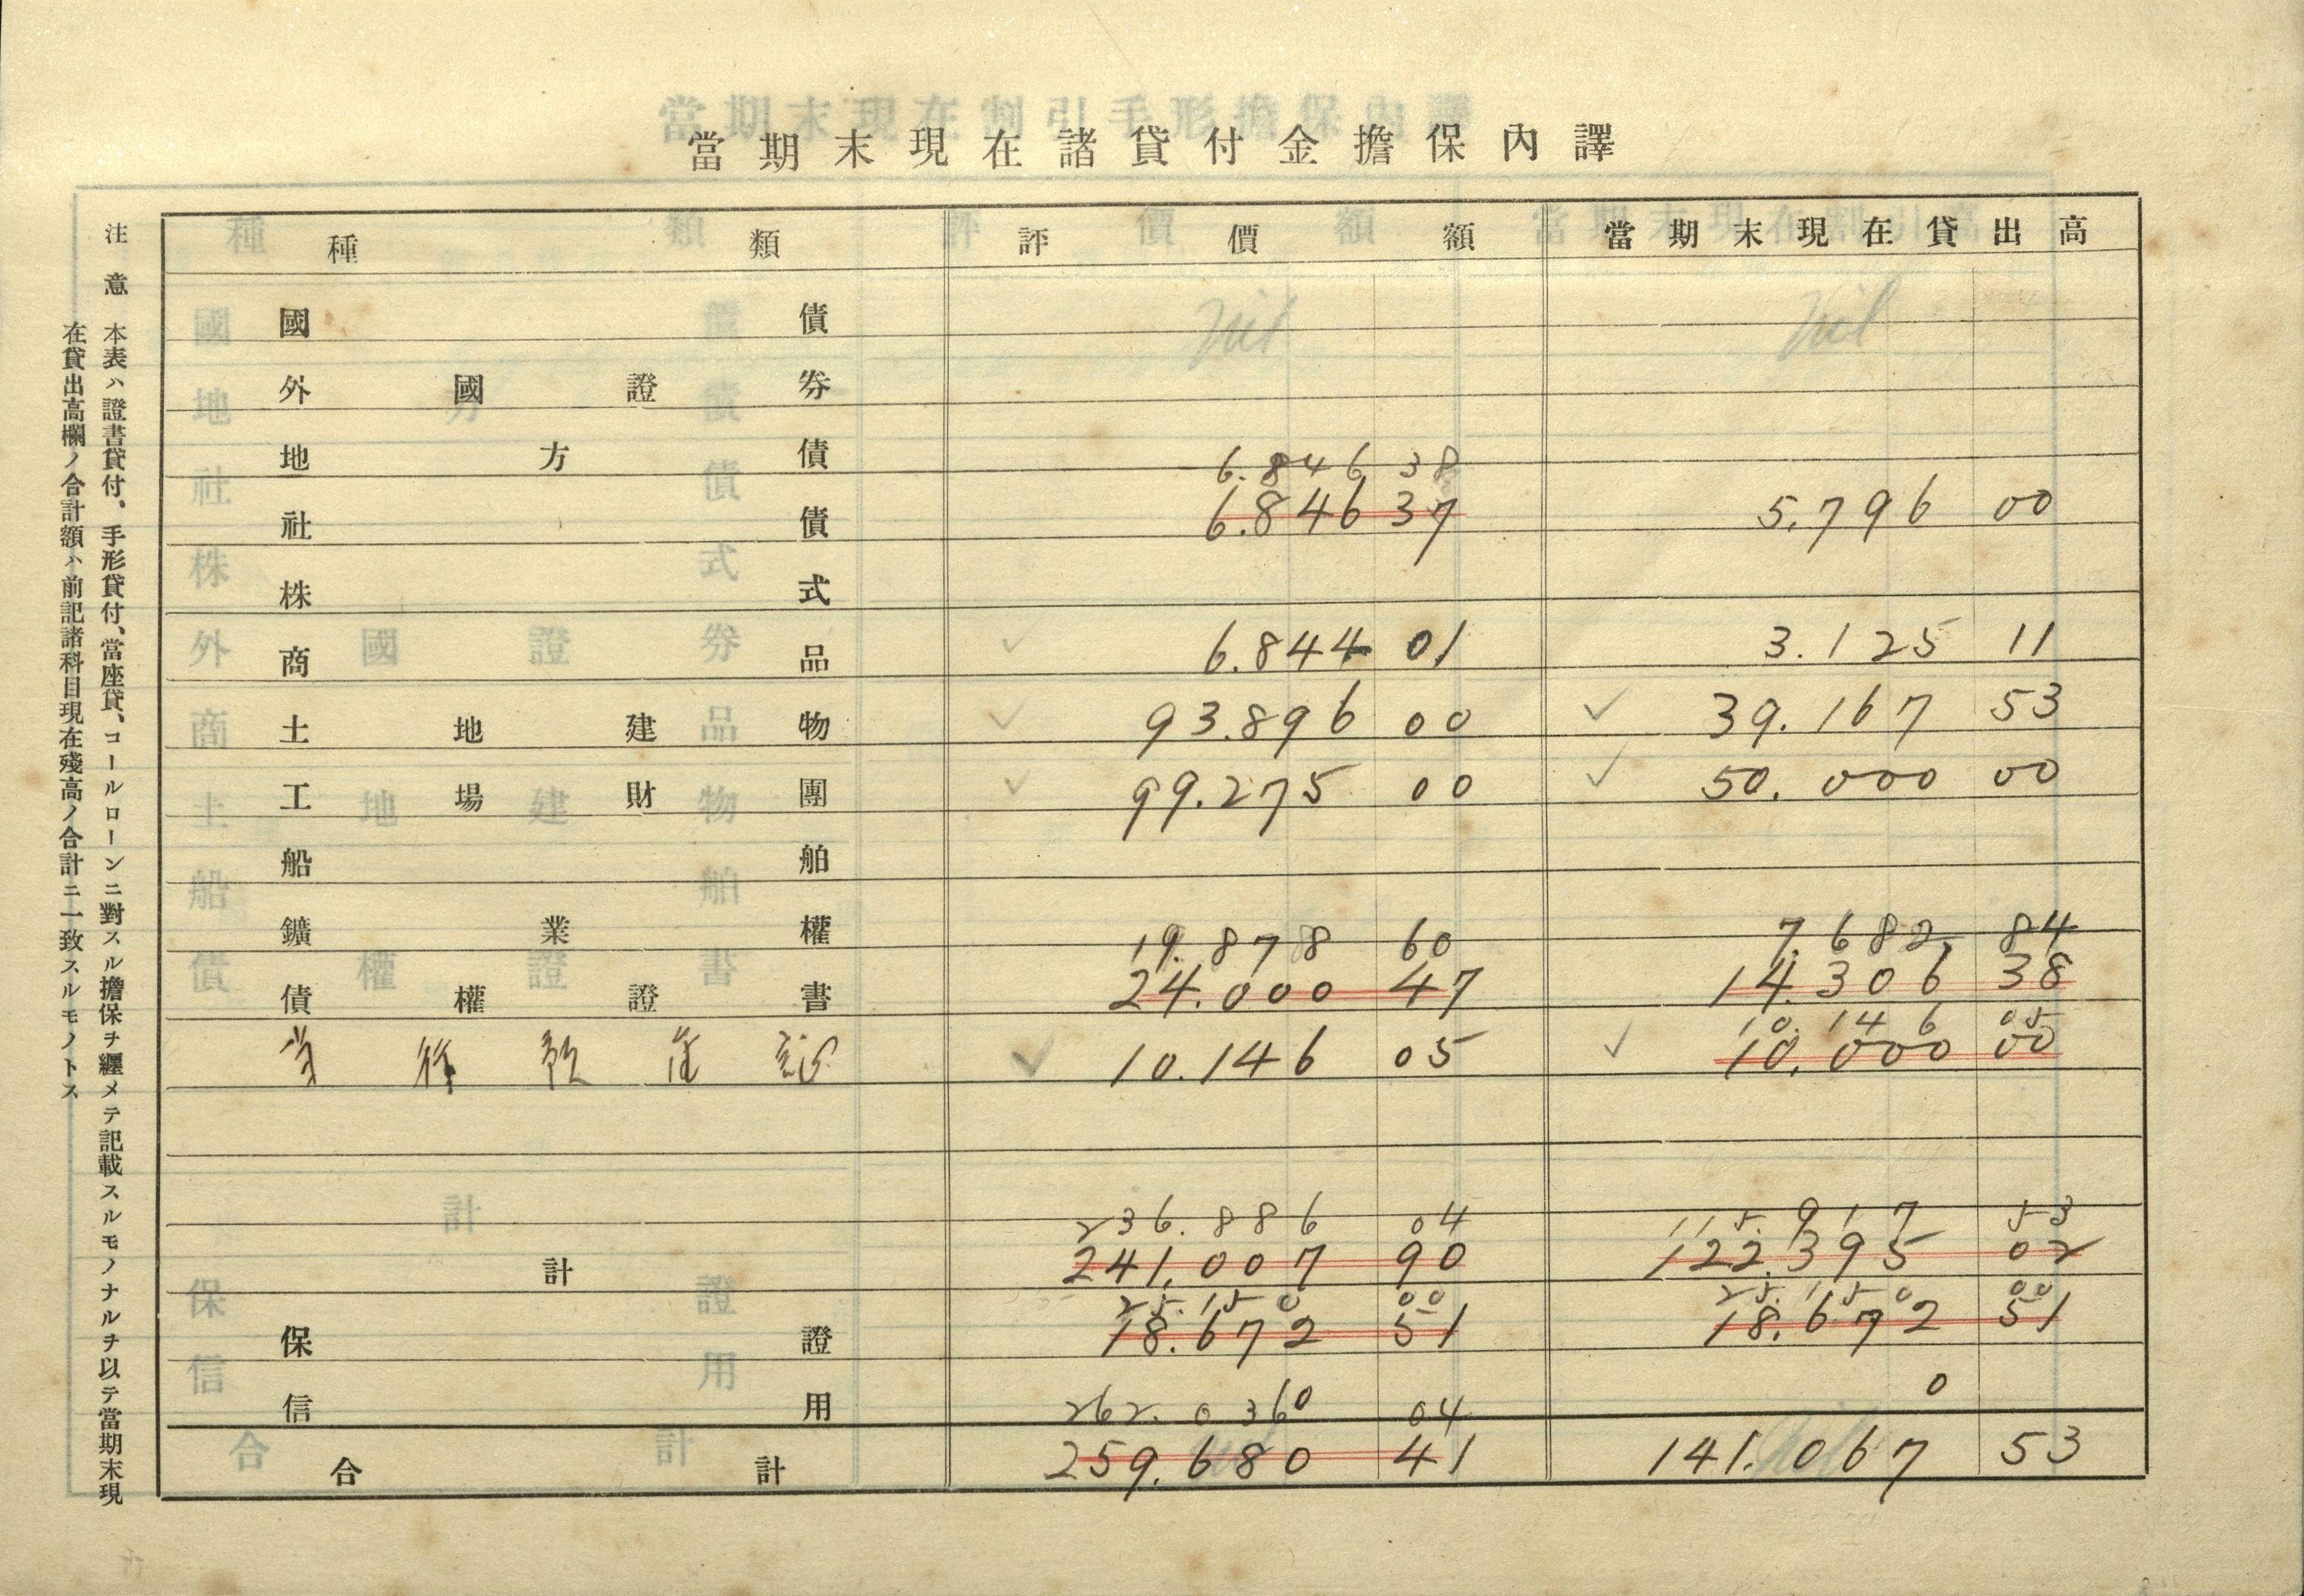 當期末現在諸貸付金擔保內譯
種類 評價額 當期末現在貸出高
國債
外國證券
地方債
6.846 38
社債 6.846 37 5.796 00
株式
商品 6.844 01 3.125 11
土地建物 93.896 00 39.167 53
工場財團 99.275 00 50.000 00
船舶
鑛業權
19.878 60 7.682 84
債權證書 24.000 47 14.306 38
10.146 05
10.146 05 10.000 00
236.886 04 115.917 53
計 241.007 90 122.395 02
25.150 00 25.150 00
保證 18.672 51 18.672 51
信用 0
262.036 04
合計 259.680 41 141.067 53
注意 本表ハ證書貸付、手形貸付、當座貸、コールローンニ對スル擔保ヲ纒メテ記載スルモノナルヲ以テ當期末現
在貸出高欄ノ合計額ハ前記諸科目現在殘高ノ合計ニ一致スルモノトス